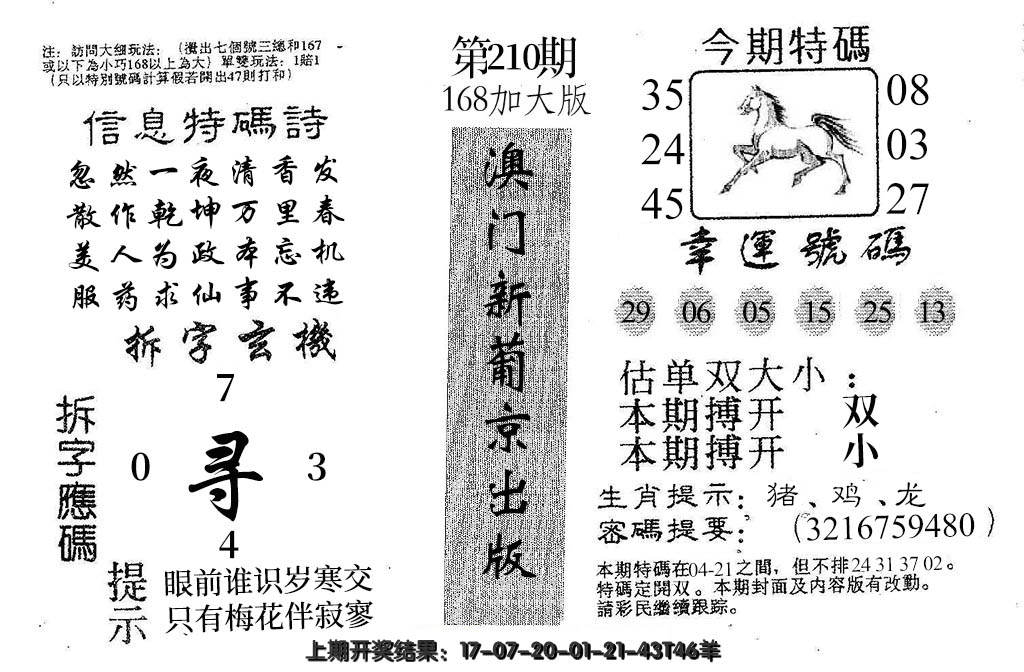 注：訪問大細玩法：（攪出七個號三總和167
或以下為小巧168以上為大）單雙玩法：1賠1
（只以特別號碼計算假若開出47則打和）
信息特碼詩
忽然一夜清香发
散作乾坤万里春
美人为政本忘机
服药求仙事不违
拆字玄機
拆字應碼
7
0 寻 3
4
提示
眼前谁识岁寒交
只有梅花伴寂寥
第210期
168加大版
澳门新葡京出版
今期特碼
35 08
24 03
45 27
幸運號碼
29 06 05 15 25 13
估单双大小：
本期搏开 双
本期搏开 小
生肖提示：猪、鸡、龙
密碼提要：（3216759480）
本期特碼在04-21之間，但不排24 31 37 02。
特碼定開双。本期封面及内容版有改動。
請彩民繼續跟踪。
上期开奖结果：17-07-20-01-21-43T46羊